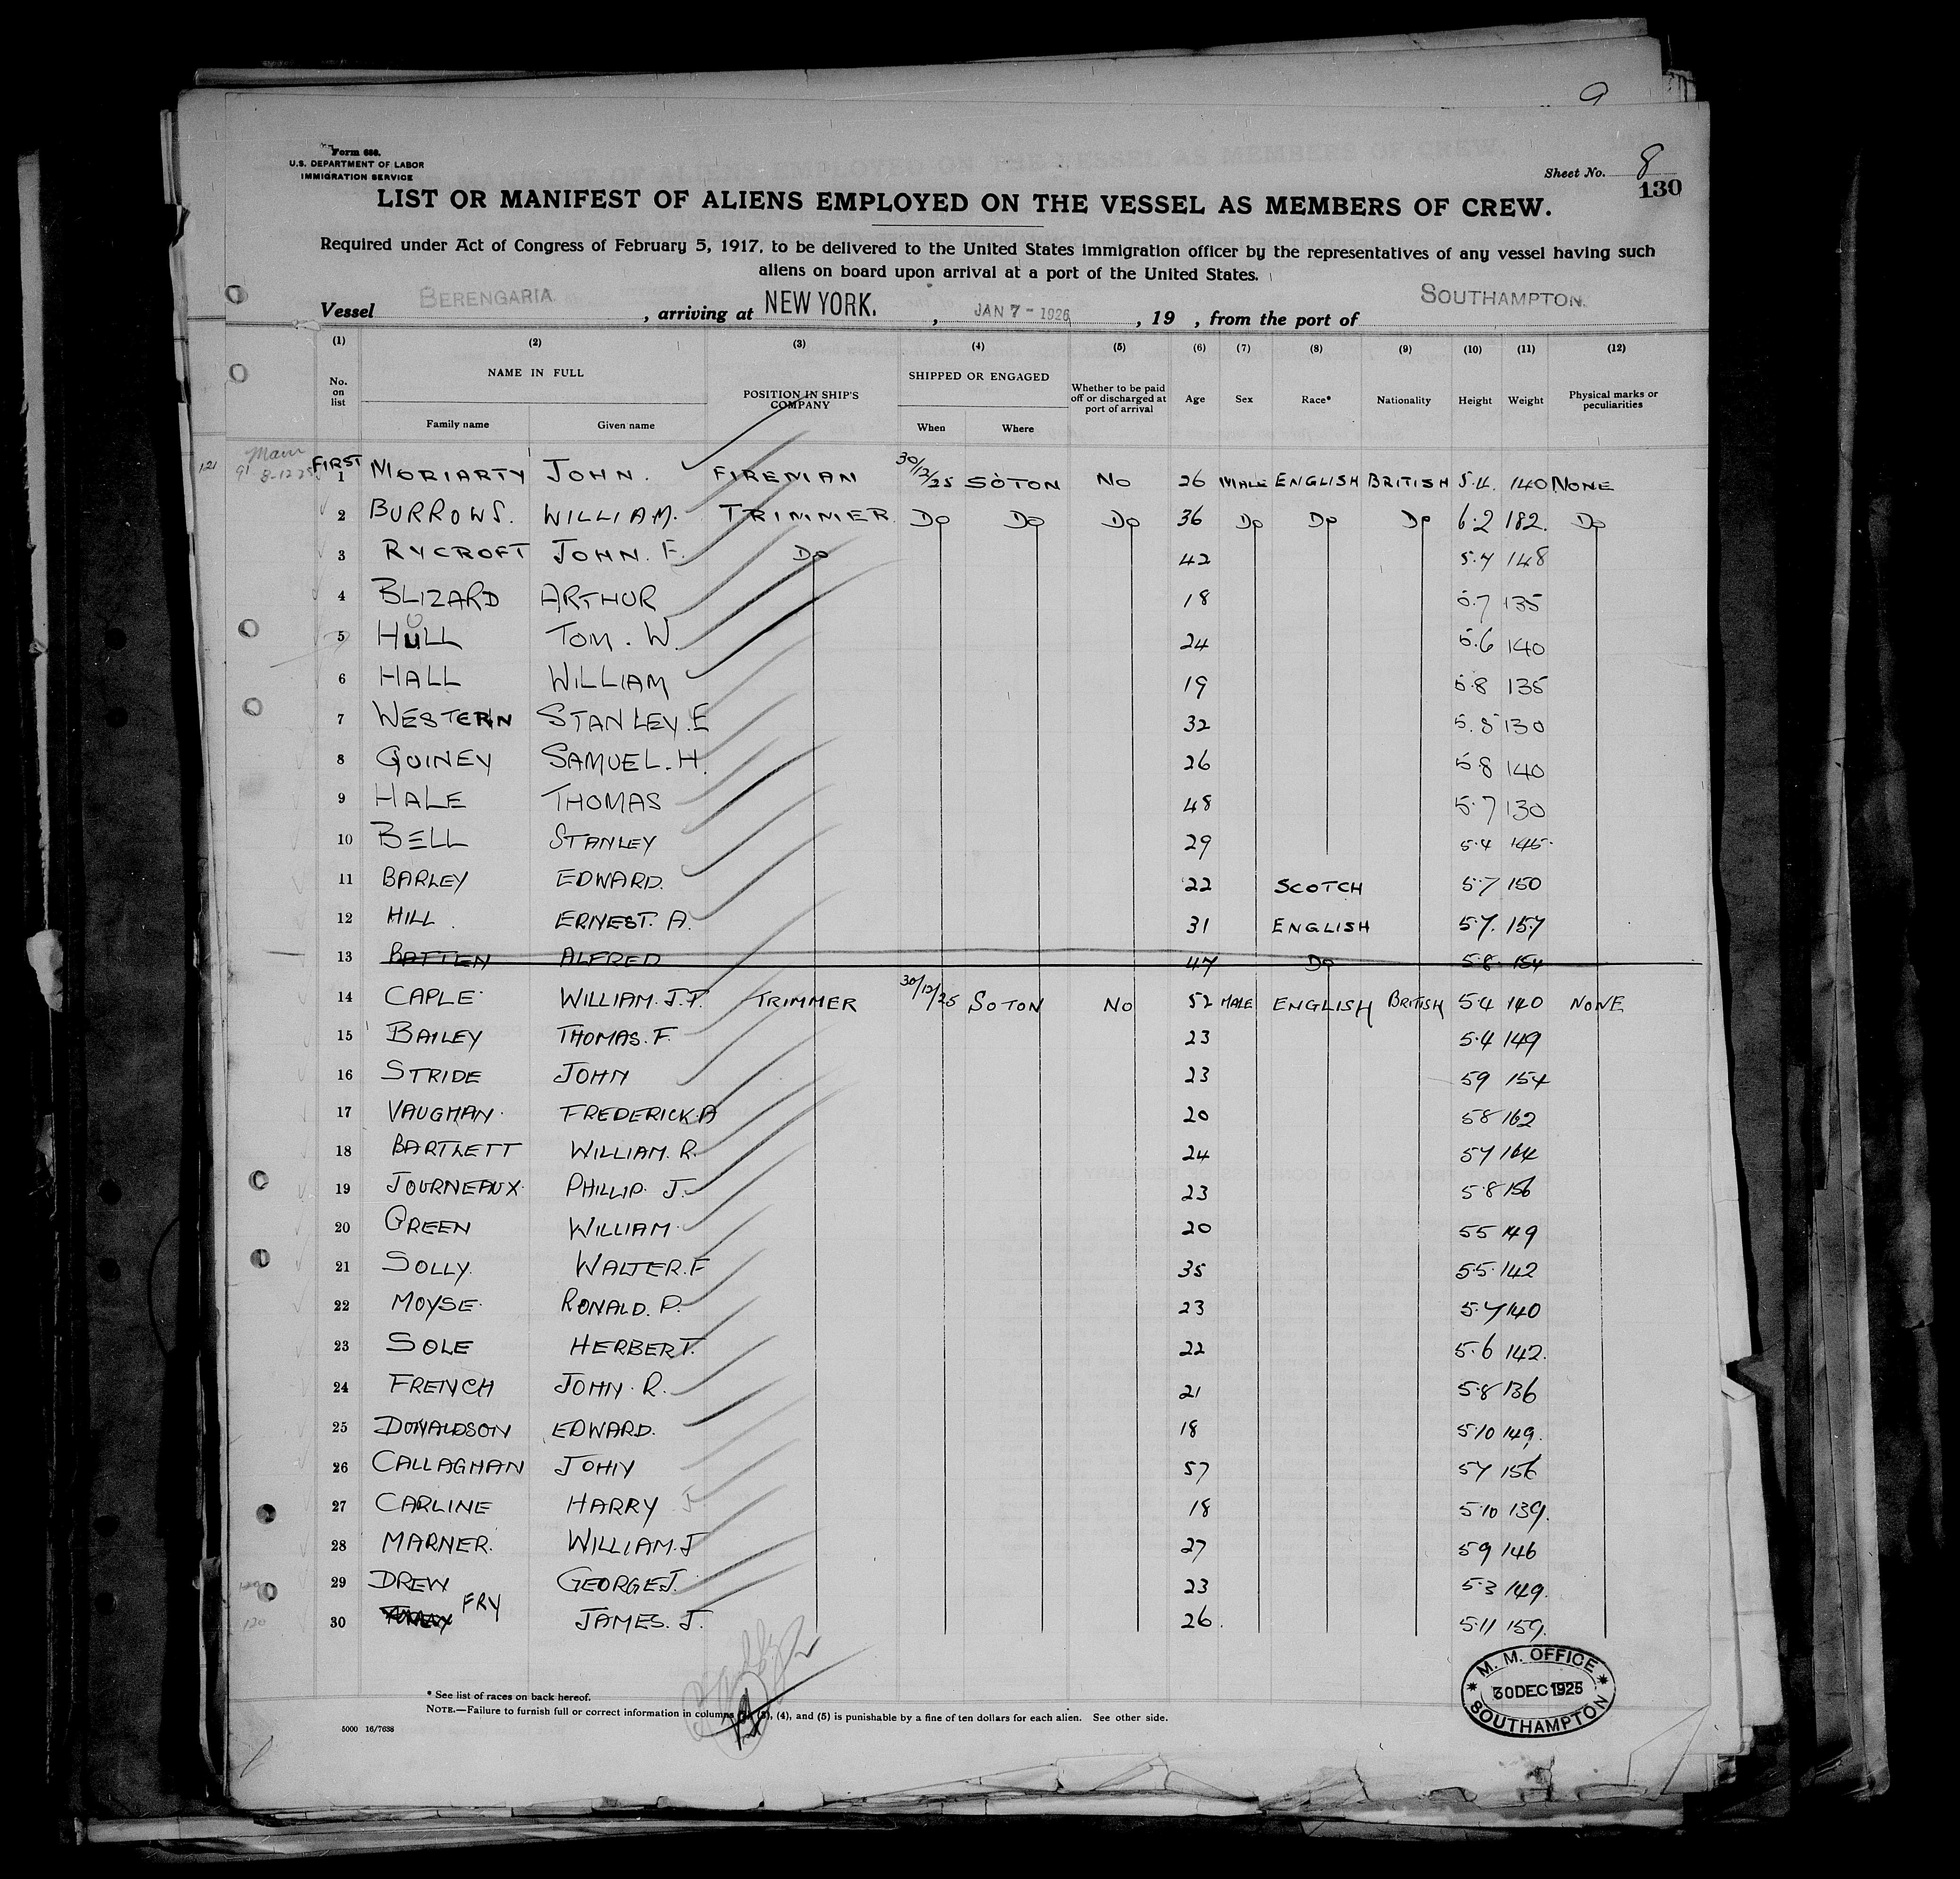 9
Form 686.
U.S. DEPARTMENT OF LABOR
IMMIGRATION SERVICE
Sheet No. 8
130
LIST OR MANIFEST OF ALIENS EMPLOYED ON THE VESSEL AS MEMBERS OF CREW.
Required under Act of Congress of February 5, 1917, to be delivered to the United States immigration officer by the representatives of any vessel having such
aliens on board upon arrival at a port of the United States.
Vessel BERENGARIA, arriving at NEW YORK., JAN 7 - 1926, 19 , from the port of SOUTHAMPTON.
(1) (2) (3) (4) (5) (6) (7) (8) (9) (10) (11) (12)
No. on list NAME IN FULL POSITION IN SHIP'S COMPANY SHIPPED OR ENGAGED Whether to be paid off or discharged at port of arrival Age Sex Race* Nationality Height Weight Physical marks or peculiarities
Family name Given name When Where
121 FIRST
1 MORIARTY JOHN. FIREMAN 30/12/25 SOTON NO 26 MALE ENGLISH BRITISH 5.4. 140 NONE
2 BURROWS. WILLIAM. TRIMMER Do Do Do 36 Do Do Do 6.2 182. Do
3 RYCROFT JOHN. F. Do 42 5.7 148
4 BLIZARD ARTHUR 18 5.7 135
5 HULL TOM. W. 24 5.6 140
6 HALL WILLIAM 19 5.8 135
7 WESTERN STANLEY.E 32 5.8 130
8 QUINEY SAMUEL.H. 26 5 8 140
9 HALE THOMAS 48 5.7 130
10 BELL STANLEY 29 5.4 145.
11 BARLEY EDWARD. 22 SCOTCH 5.7 150
12 HILL. ERNEST. A. 31 ENGLISH 5.7. 157
13 BATTEN ALFRED 47 Do 5.8. 154
14 CAPLE WILLIAM.J.P. TRIMMER 30/12/25 SOTON NO 52 MALE ENGLISH BRITISH 5.4 140 NONE
15 BAILEY THOMAS.F. 23 5.4 149
16 STRIDE JOHN 23 59 154
17 VAUGHAN. FREDERICK.A 20 58 162
18 BARTLETT WILLIAM. R. 24 57 164
19 JOURNEAUX. PHILLIP. J. 23 5.8 156
20 GREEN WILLIAM. 20 55 149
21 SOLLY. WALTER.F 35 5.5. 142
22 MOYSE. RONALD. P. 23 5.7 140
23 SOLE HERBERT. 22 5.6 142.
24 FRENCH JOHN. R. 21 5.8 136
25 DONALDSON EDWARD. 18 5.10 149.
26 CALLAGHAN JOHN 57 57 156
27 CARLINE HARRY J. 18 5.10 139.
28 MARNER. WILLIAM.J 27 59 146
29 DREW GEORGE J. 23 5.3 149.
30 FRY JAMES. J. 26. 5.11 159.
* See list of races on back hereof.
NOTE.—Failure to furnish full or correct information in columns (3), (4), and (5) is punishable by a fine of ten dollars for each alien. See other side.
5000 16/7638
M. M. OFFICE
30 DEC 1925
SOUTHAMPTON